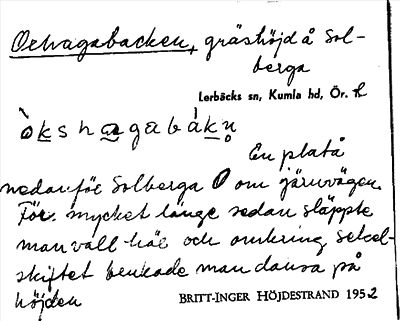 Oxhagabacken, gräshöjd å Sol-
berga
Lerbäcks sn, Kumla hd, Ör. l.
En platå
nedanför Solberga O om järnvägen.
För mycket länge sedan släppte
man vall här och omkring sekel-
skiftet brukade man dansa på
höjden
BRITT-INGER HÖJDESTRAND 1952